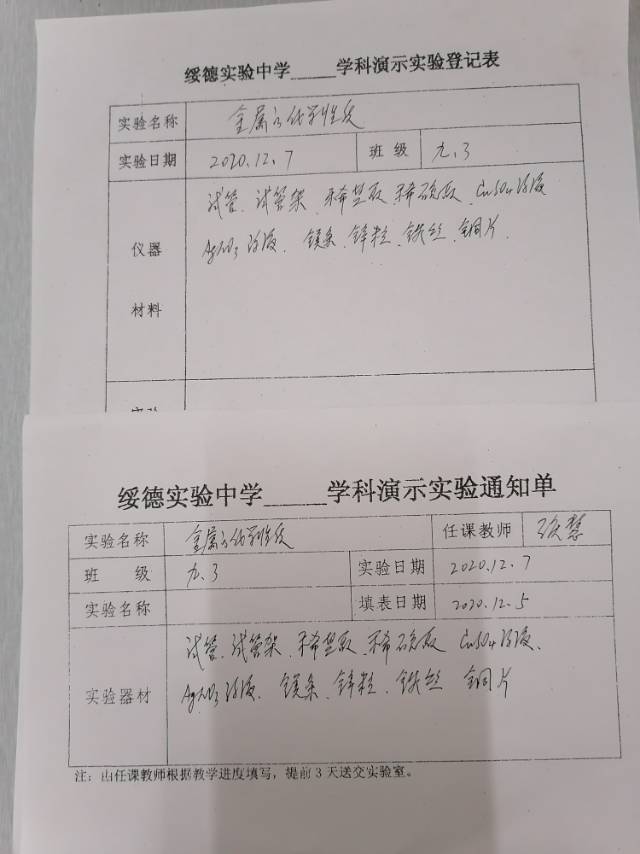 绥德实验中学_____学科演示实验登记表
实验名称 金属的化学性质
实验日期 2020.12.7 班 级 九.3
试管、试管架、稀盐酸、稀硫酸、CuSO4溶液
仪器 AgNO3溶液、镁条、锌粒、铁丝、铜片.
材料
绥德实验中学_____学科演示实验通知单
实验名称 金属的化学性质 任课教师
班 级 九.3 实验日期 2020.12.7
实验名称 填表日期 2020.12.5
试管、试管架、稀盐酸、稀硫酸 CuSO4溶液、
实验器材 AgNO3溶液、镁条、锌粒、铁丝 铜片
注：由任课教师根据教学进度填写，提前3天送交实验室。